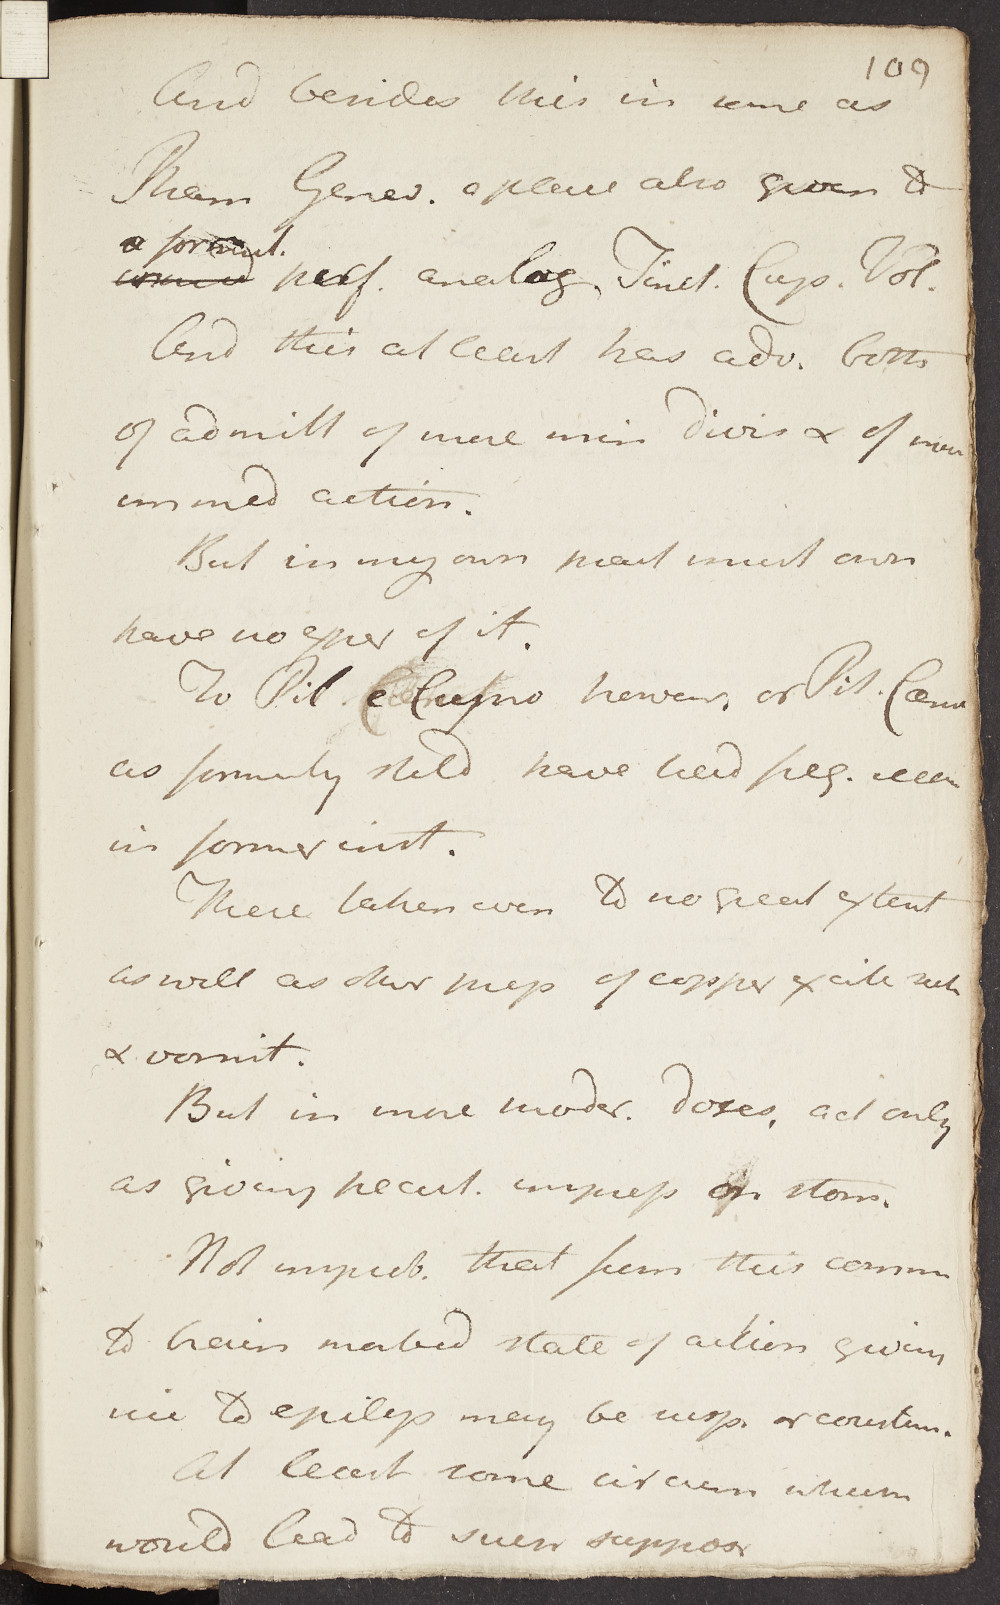 109
And besides this in some as
Pharm Genev. a place also given to
a formul.
perf. analog. Tinct. Cup. Vol.
And this at least has adv. both
of admitt of more min divis & of more
immed action.
But in my own pract must own
have no exper of it.
To Pil. e Cupro however, or Pil. Cærul
as formerly stild have had freq. recou
in former inst.
These taken even to no great extent
as well as other prep of copper excite
& vomit.
But in more moder. doses, act only
as giving pecul. impress on stom.
Not improb. that from this commun
to brain morbid state of action giving
rise to epileps may be susp. or counteru.
At least some circum wheron
would lead to such suppos